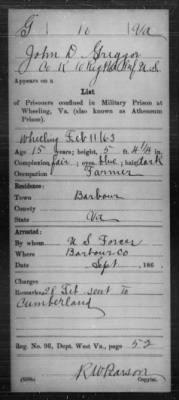 G | 10 | Va
John D. Gregor
Co K 10 Reg
Appears on a
List
of Prisoners confined in Military Prison at
Wheeling, Va. (also known as Athenaeum
Prison).
Wheeling Feb 11/63
Age 15 years; height, 5 ft 4 1/2 in.
Complexion, fair; eyes, blue; hair, dark
Occupation Farmer
Residence:
Town Barbour
County
State Va
Arrested:
By whom U S Forces
Where Barbour Co
Date Sept , 186 .
Charges
Remarks: 28 Feb sent to
Cumberland
Reg. No. 96, Dept. West Va., page 52
R W Parson
Copyist.